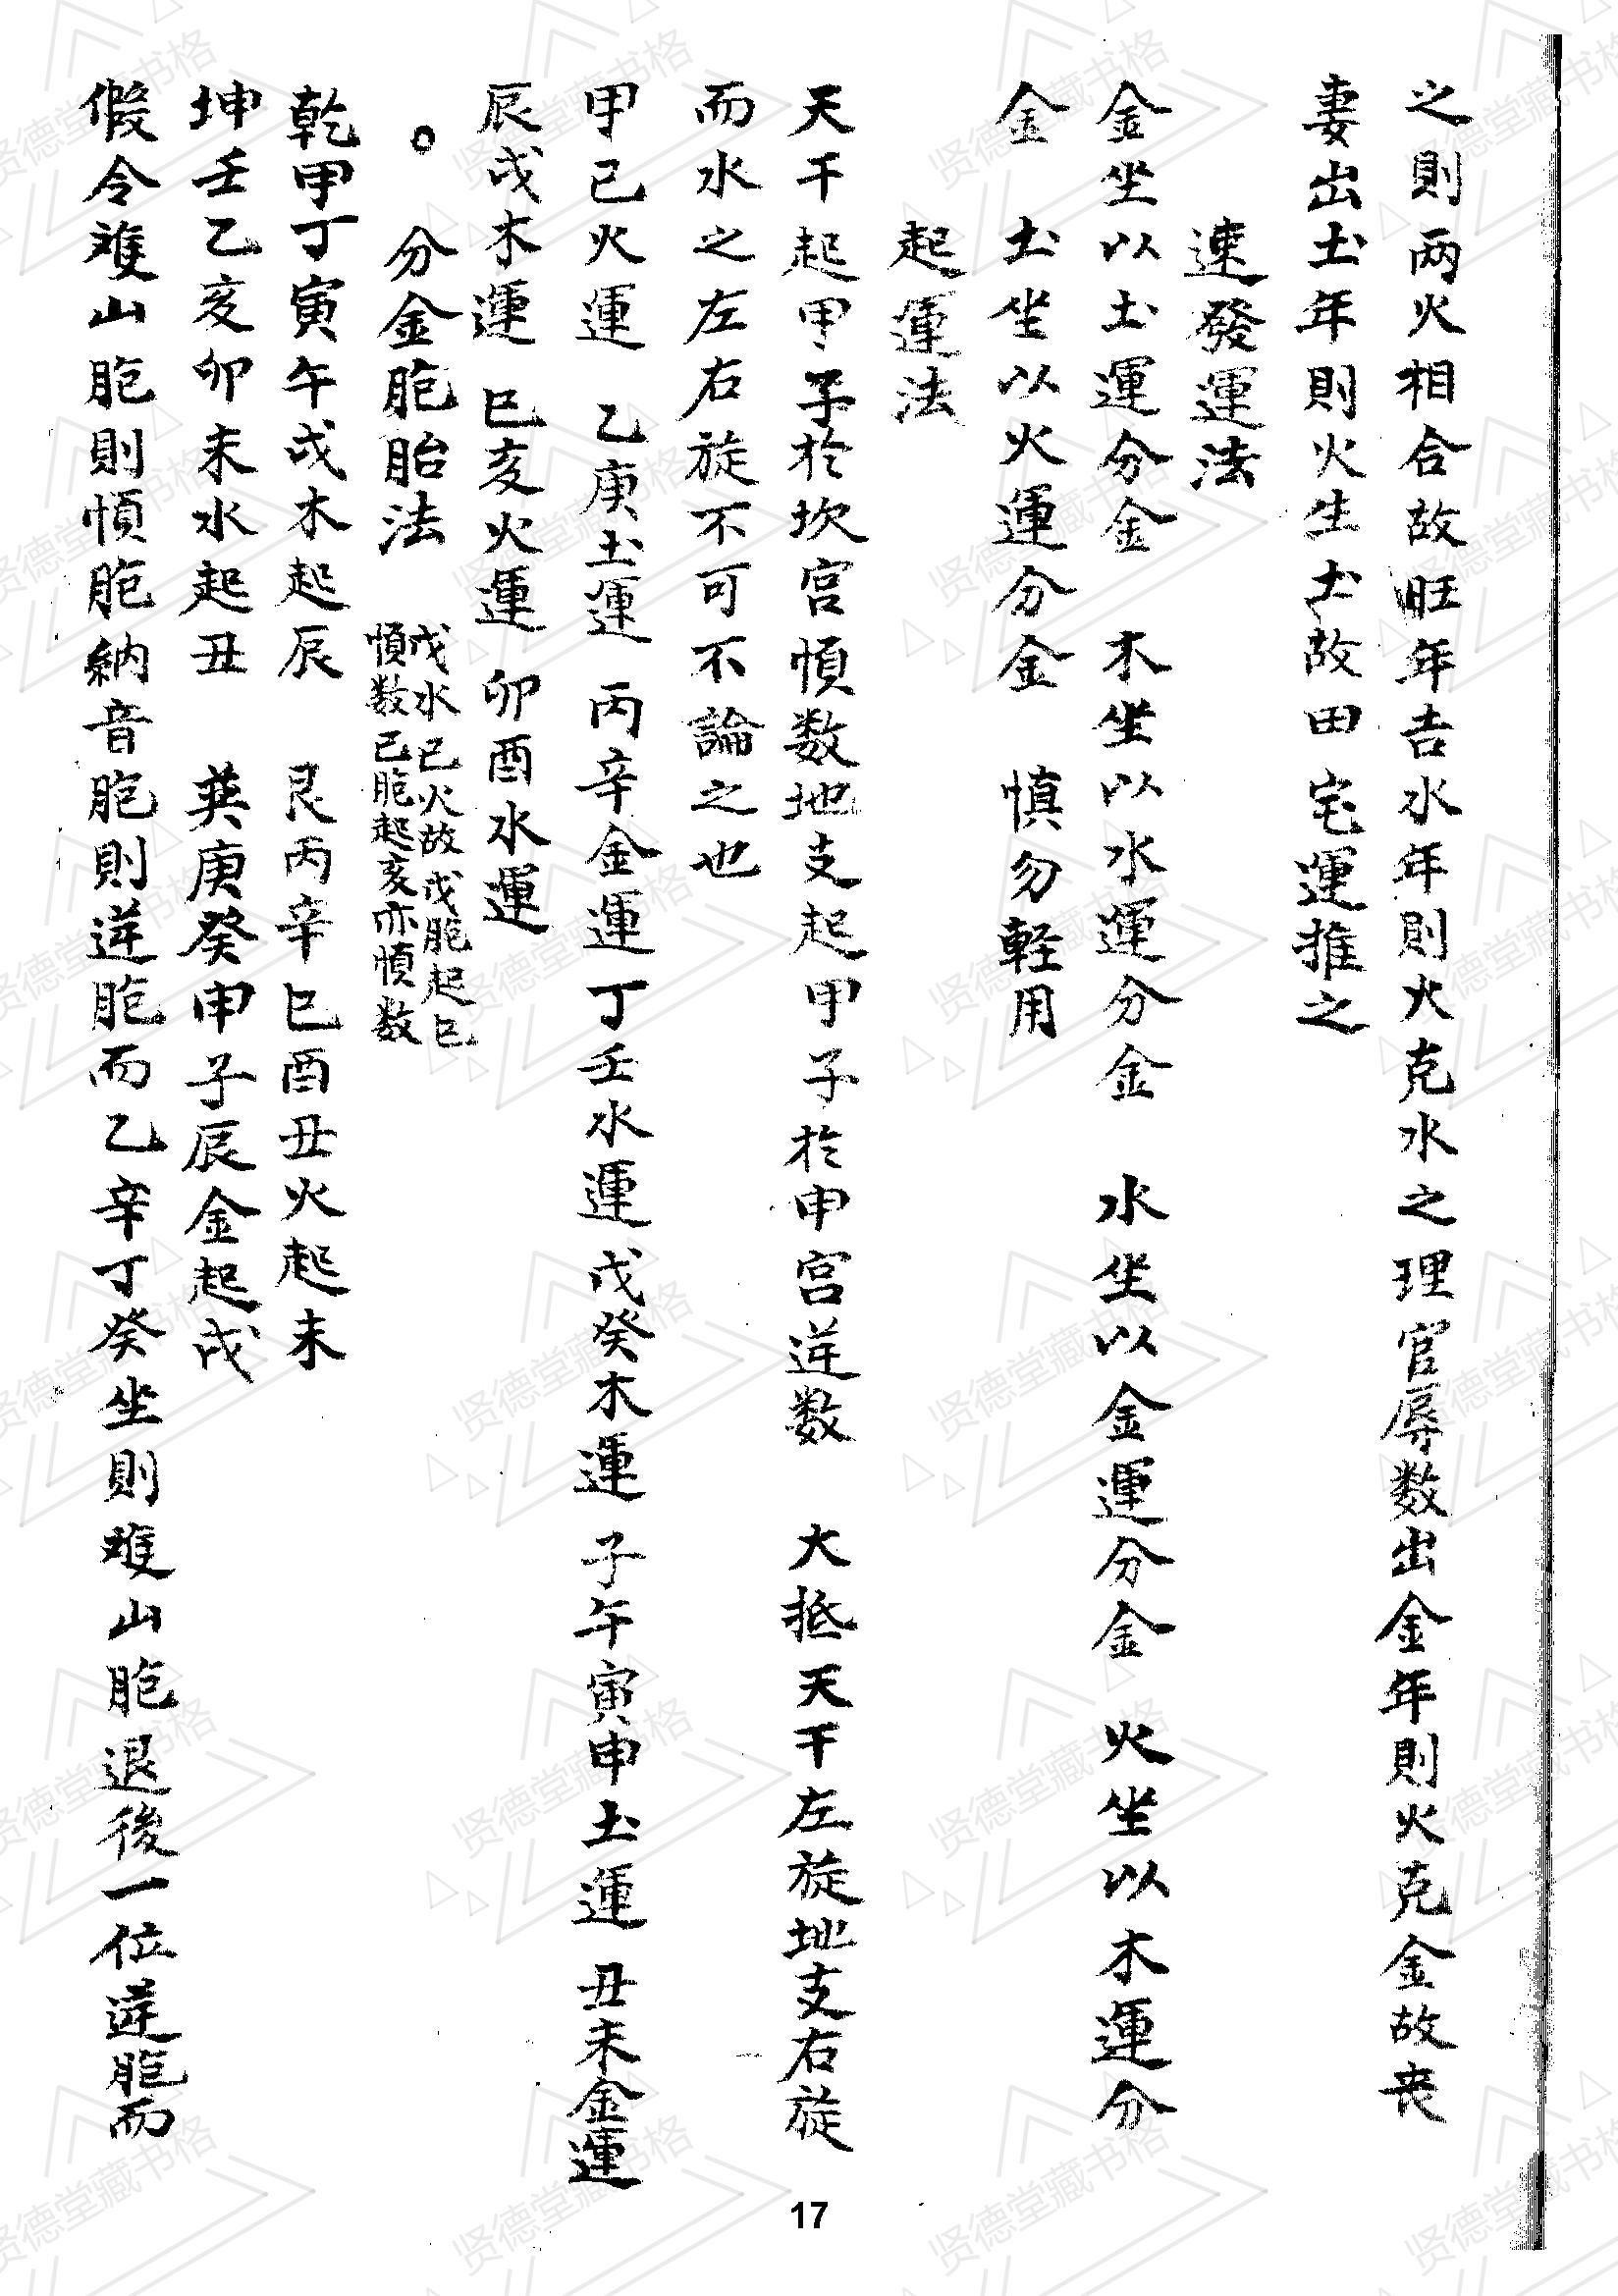 之則两火相合故旺年吉水年則火克水之理官辱数出金年則火克金故丧
妻出土年則火生土故田宅運推之
速發運法
金坐以土運分金　木坐以水運分金　水坐以金運分金　火坐以木運分
金　土坐以火運分金　慎勿軽用
起運法
天干起甲子於坎宫慎数地支起甲子於申宫逆数　大抵天干左旋地支右旋
而水之左右旋不可不論之也
甲己火運　乙庚土運　丙辛金運丁壬水運　戊癸木運　子午寅申土運　丑未金運
辰戌木運　巳亥火運　卯酉水運
○　分金胞胎法　戊水已火故戊胞起巳
慎数己胞起亥亦慎数
乾甲丁寅午戌木起辰　艮丙辛巳酉丑火起未
坤壬乙亥卯未水起丑　巽庚癸申子辰金起戌
假令难山胞則慎胞納音胞則逆胞而乙辛丁癸坐則难山胞退後一位逆胞而
17
贤德堂藏书格